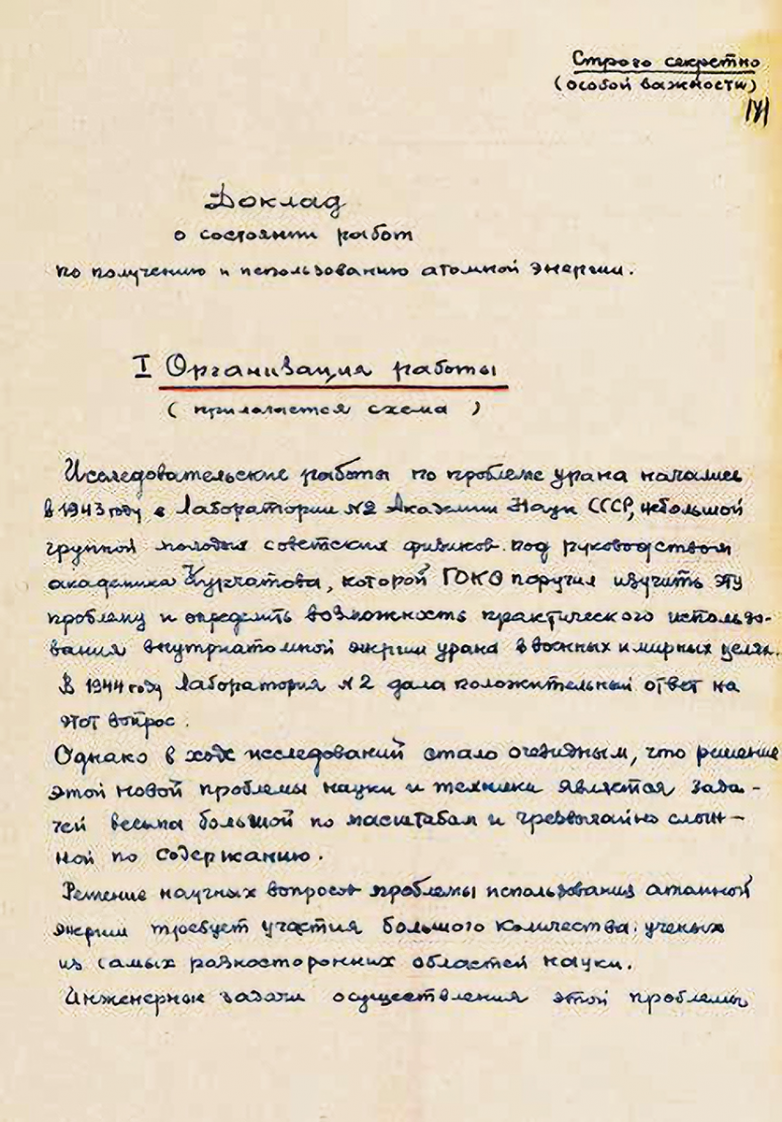 Строго секретно
(особой важности)
Доклад
о состоянии работ
по получению и использованию атомной энергии.
I Организация работы
(прилагается схема)
Исследовательские работы по проблеме урана начались
в 1943 году в Лаборатории №2 Академии Наук СССР, небольшой
группой молодых советских физиков под руководством
академика Курчатова, которой ГОКО поручил изучить эту
проблему и определить возможность практического использо-
вания внутриатомной энергии урана в военных и мирных целях.
В 1944 году Лаборатория №2 дала положительный ответ на
этот вопрос.
Однако в ходе исследований стало очевидным, что решение
этой новой проблемы науки и техники является зада-
чей весьма большой по масштабам и чрезвычайно слож-
ной по содержанию.
Решение научных вопросов проблемы использования атомной
энергии требует участия большого количества ученых
из самых разносторонних областей науки.
Инженерные задачи осуществления этой проблемы